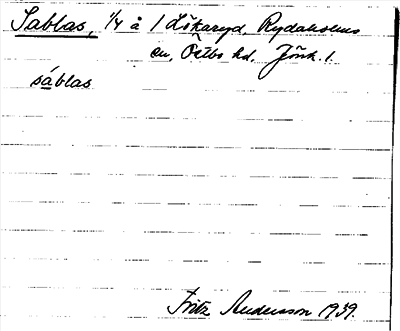 Sablas, 1/4 å 1 Lökaryd, Rydaholms
sn, Östbo hd, Jönk. l.
sáblas
Fritz Andersson 1939.